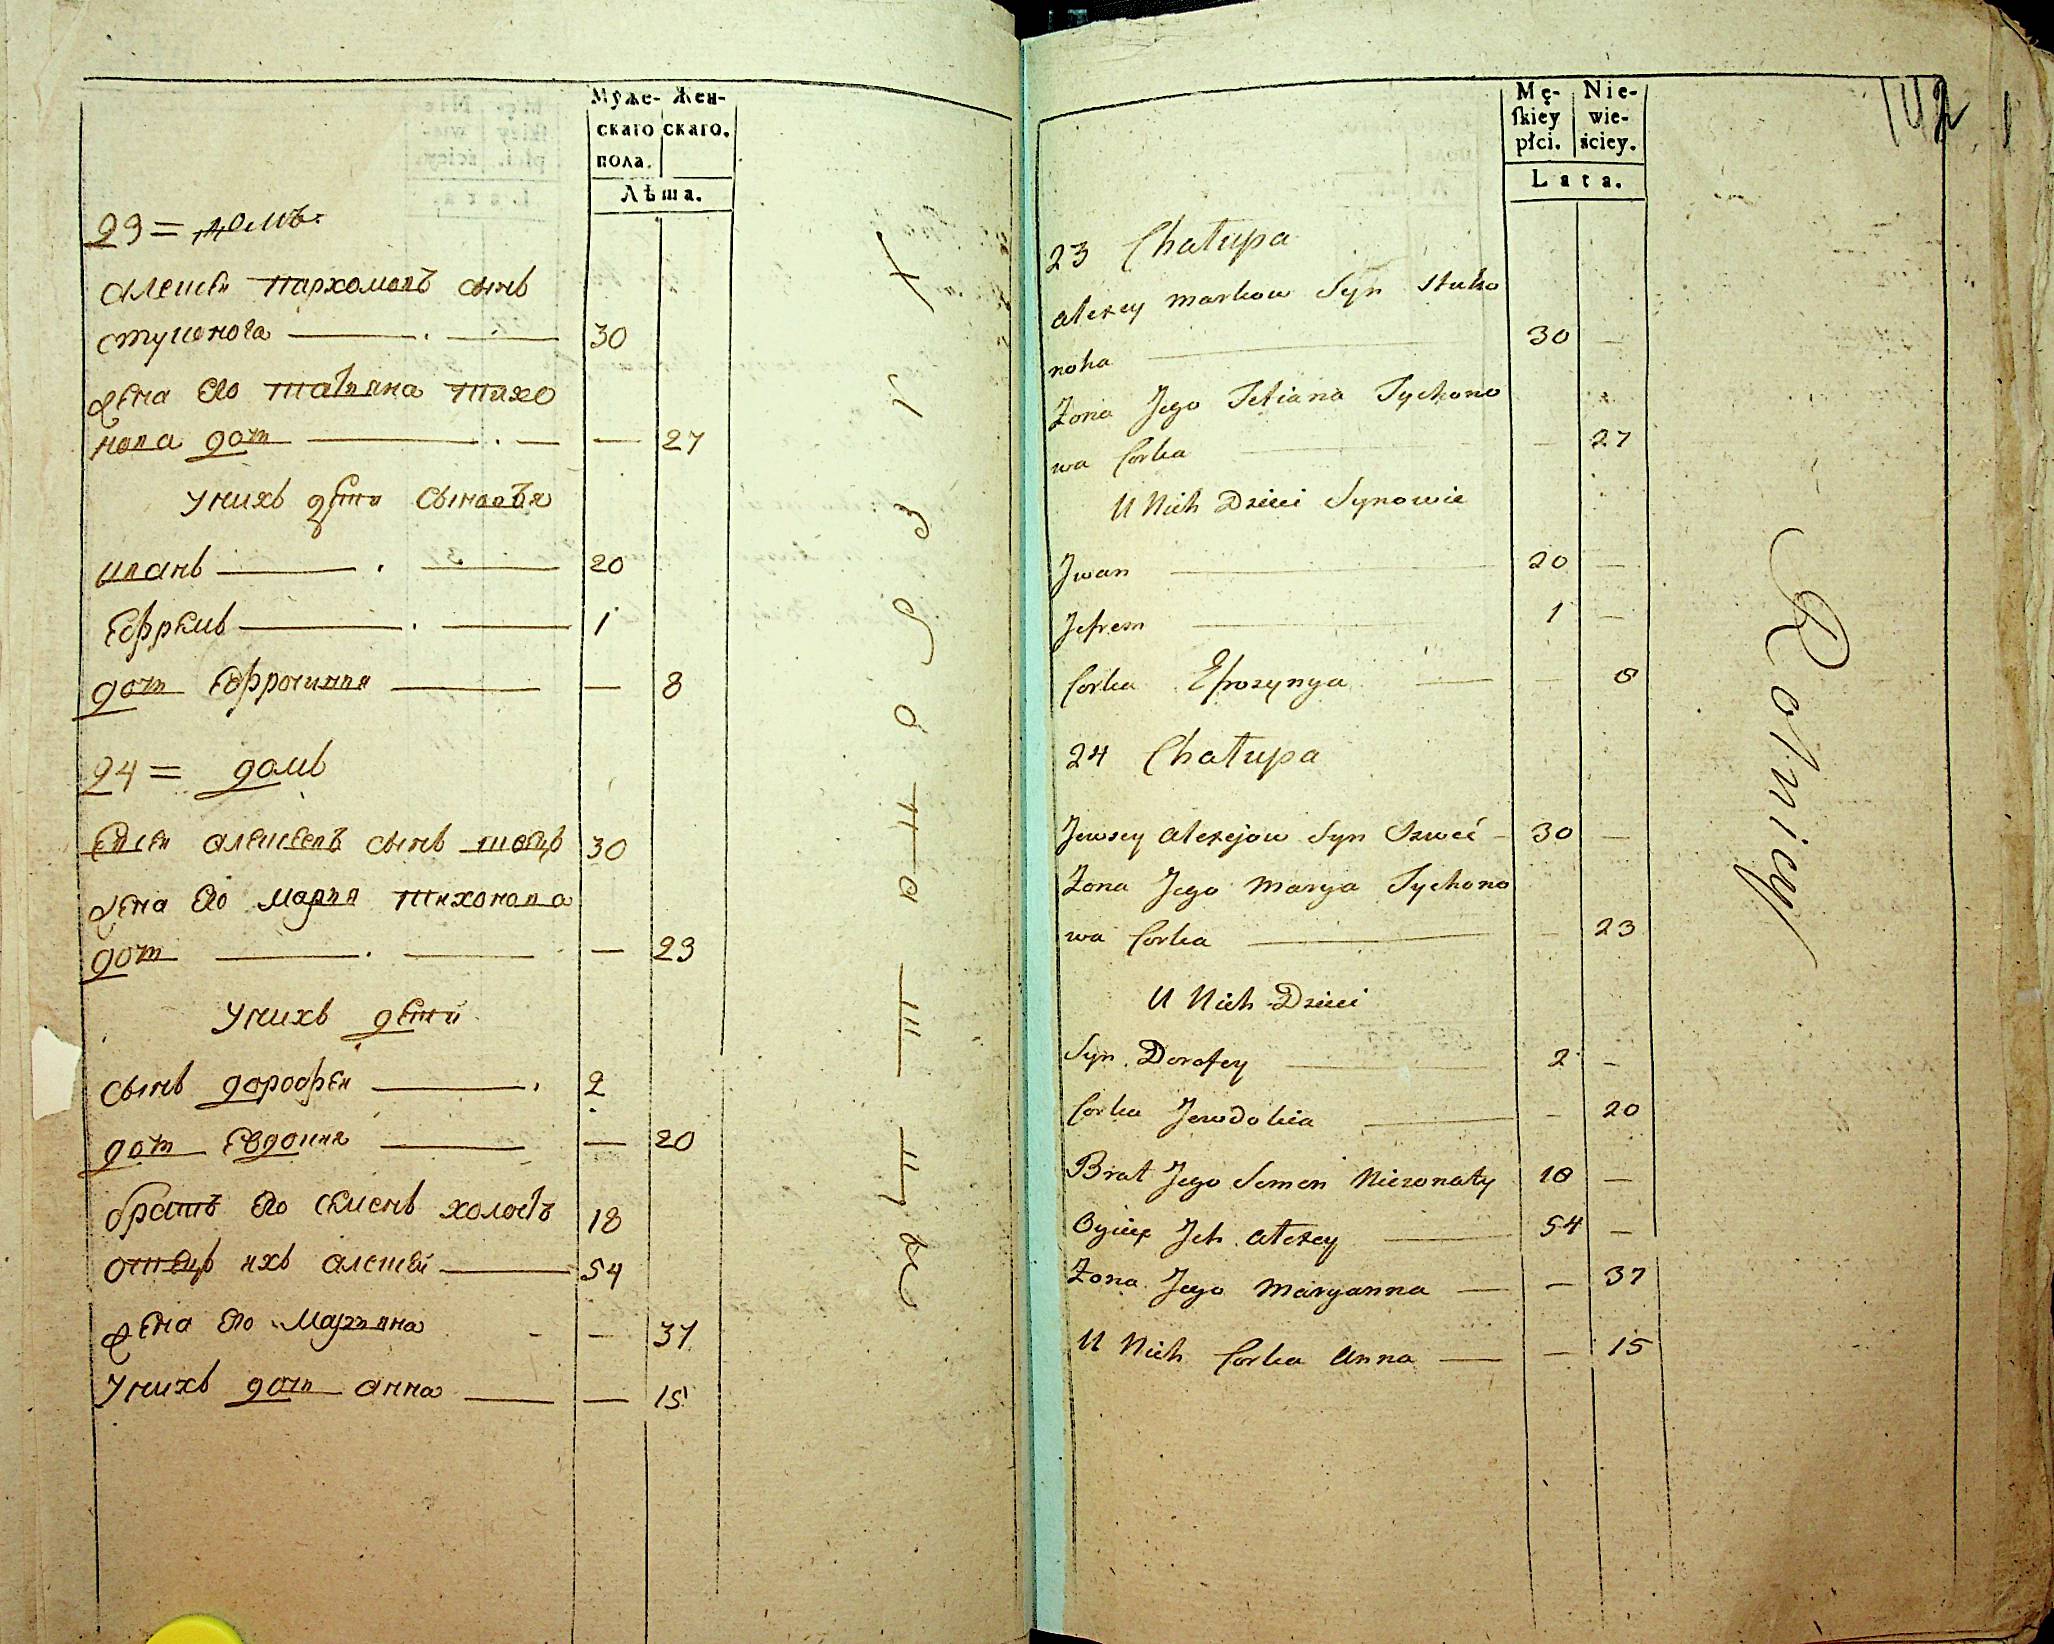 Муже- Жен-
скаго скаго.
пола.
Лѣта.
23 = домъ
алеѯей пархомовъ сынъ
стуконога 30
жена его татьяна тихо
нова дочь — 27
у нихъ дети сыновья
иванъ 20
Ефремъ 1
дочь Ефросинья — 8
24 = домъ
Евсей алеѯеевъ сынъ швецъ 30
жена его марья тихонова
дочь — 23
у нихъ дети
сынъ дорофей 2
дочь Евдокия — 20
братъ его семенъ холостъ 18
отецъ ихъ алеѯей 54
жена его марьяна — 37
у нихъ дочь анна — 15
Хлѣбопашцы
142
Mę- Nie-
skiey wie-
płci. ściey.
Lata.
23 Chałupa
alexey markow Syn Stuko
noha 30 —
Żona Jego Tetiana Tychono
wa Corka — 27
U Nich Dzieci Synowie
Jwan 20 —
Jefrem 1 —
Corka Efrozynya — 8
24 Chałupa
Jewsey alexejow Syn Szweć 30 —
Żona Jego Marya Tychono
wa Corka — 23
U Nich Dzieci
Syn Dorofey 2 —
Corka Jewdokia — 20
Brat Jego Semen Niezonaty 18 —
Oyciec Jch alexey 54 —
Żona Jego Maryanna — 37
U Nich Corka Anna — 15
Rolnicy